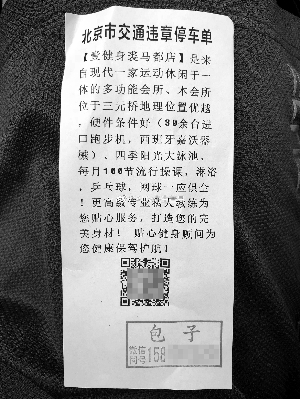 北京市交通违章停车单
【爱健身裘马都店】是来
自现代一家运动休闲于一
体的多功能会所、本会所
位于三元桥地理位置优越
，硬件条件好（80余台进
口跑步机，西班牙嘉沃器
械）、四季阳光大泳池、
每月160节流行操课，淋浴
、乒乓球，网球一应俱全
！更高薪专业私人教练为
您贴心服务，打造您的完
美身材！贴心健身顾问为
您健康保驾护航！
包子
微信
同号 158